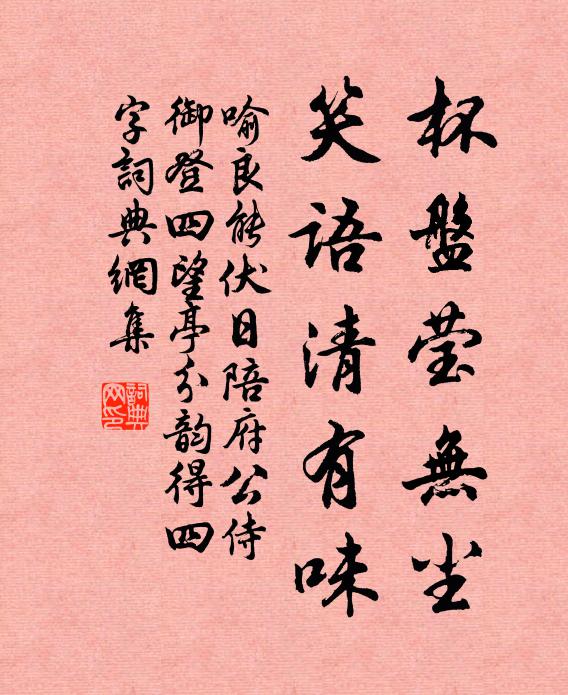 杯盤莹無尘
笑語清有味
喻良能伏日陪府公侍
御登四望亭分韵得四
字詞典網集
詞典
网印